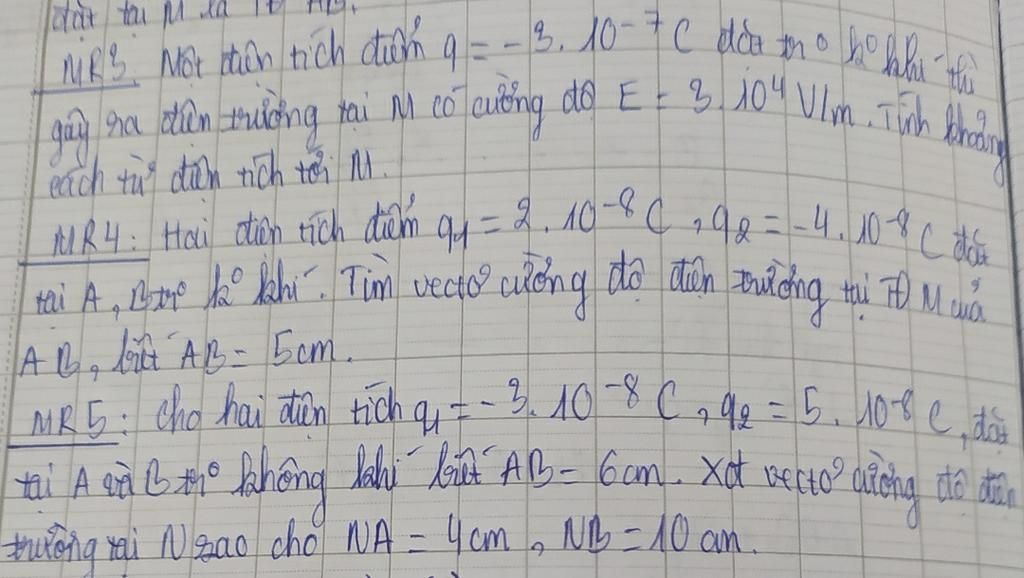 đặt tại M là TĐ AB.
MR3. Một điện tích điểm q = -3. 10⁻⁷ C đặt trº kº khí thì
gây ra điện trường tại M có cường độ E = 3. 10⁴ V/m. Tính khoảng
cách từ điện tích tới M.
MR4: Hai điện tích điểm q₁ = 2. 10⁻⁸ C, q₂ = -4. 10⁻⁸ C đặt
tại A, B trº kº khí. Tìm vectơ cường độ điện trường tại TĐ M của
AB, biết AB = 5cm.
MR5: Cho hai điện tích q₁ = -3. 10⁻⁸ C, q₂ = 5. 10⁻⁸ C, đặt
tại A và B trº không khí biết AB = 6cm. Xđ vectơ cường độ điện
trường tại N sao cho NA = 4cm, NB = 10 cm.